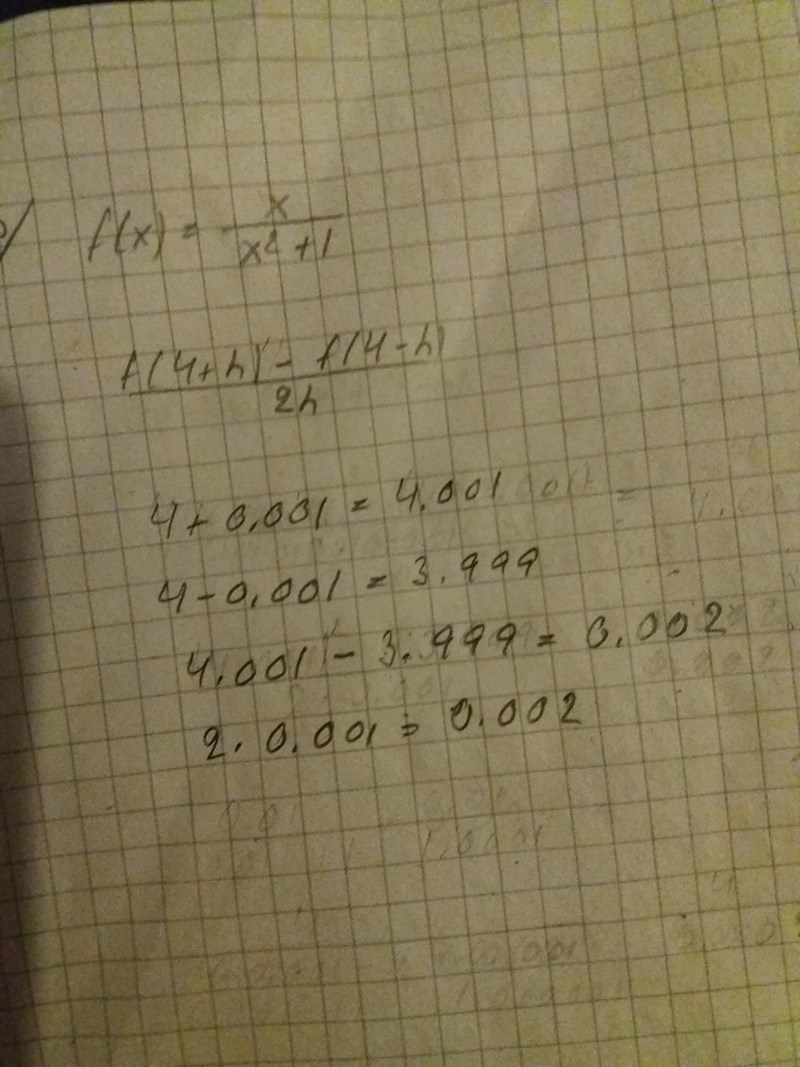 f(x) = x / (x² + 1)
(f(4+h) - f(4-h)) / 2h
4 + 0.001 = 4.001
4 - 0.001 = 3.999
4.001 - 3.999 = 0.002
2 · 0.001 = 0.002